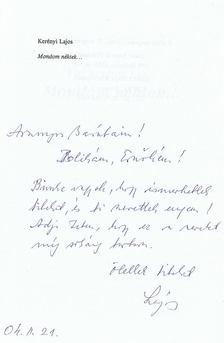 Kerényi Lajos
Mondom néktek...
Aranyos Barátaim!
Dolikám, Ernőkém!
Büszke vagyok, hogy ismerhetlek
titeket, és ti szerettek engem!
Adja Isten, hogy ez a szeretet
még sokáig tartson.
Ölellek titeket
Lajos
04. II. 21.